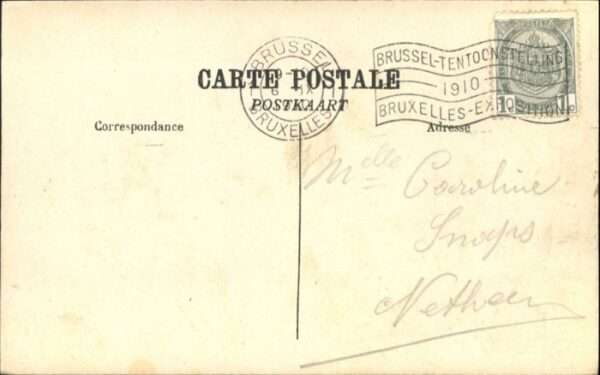 BRUSSEL
BRUXELLES
BRUSSEL-TENTOONSTELLING
1910
BRUXELLES-EXPOSITION
1
CARTE POSTALE
POSTKAART
Correspondance
Adresse
Melle Caroline
Snaps